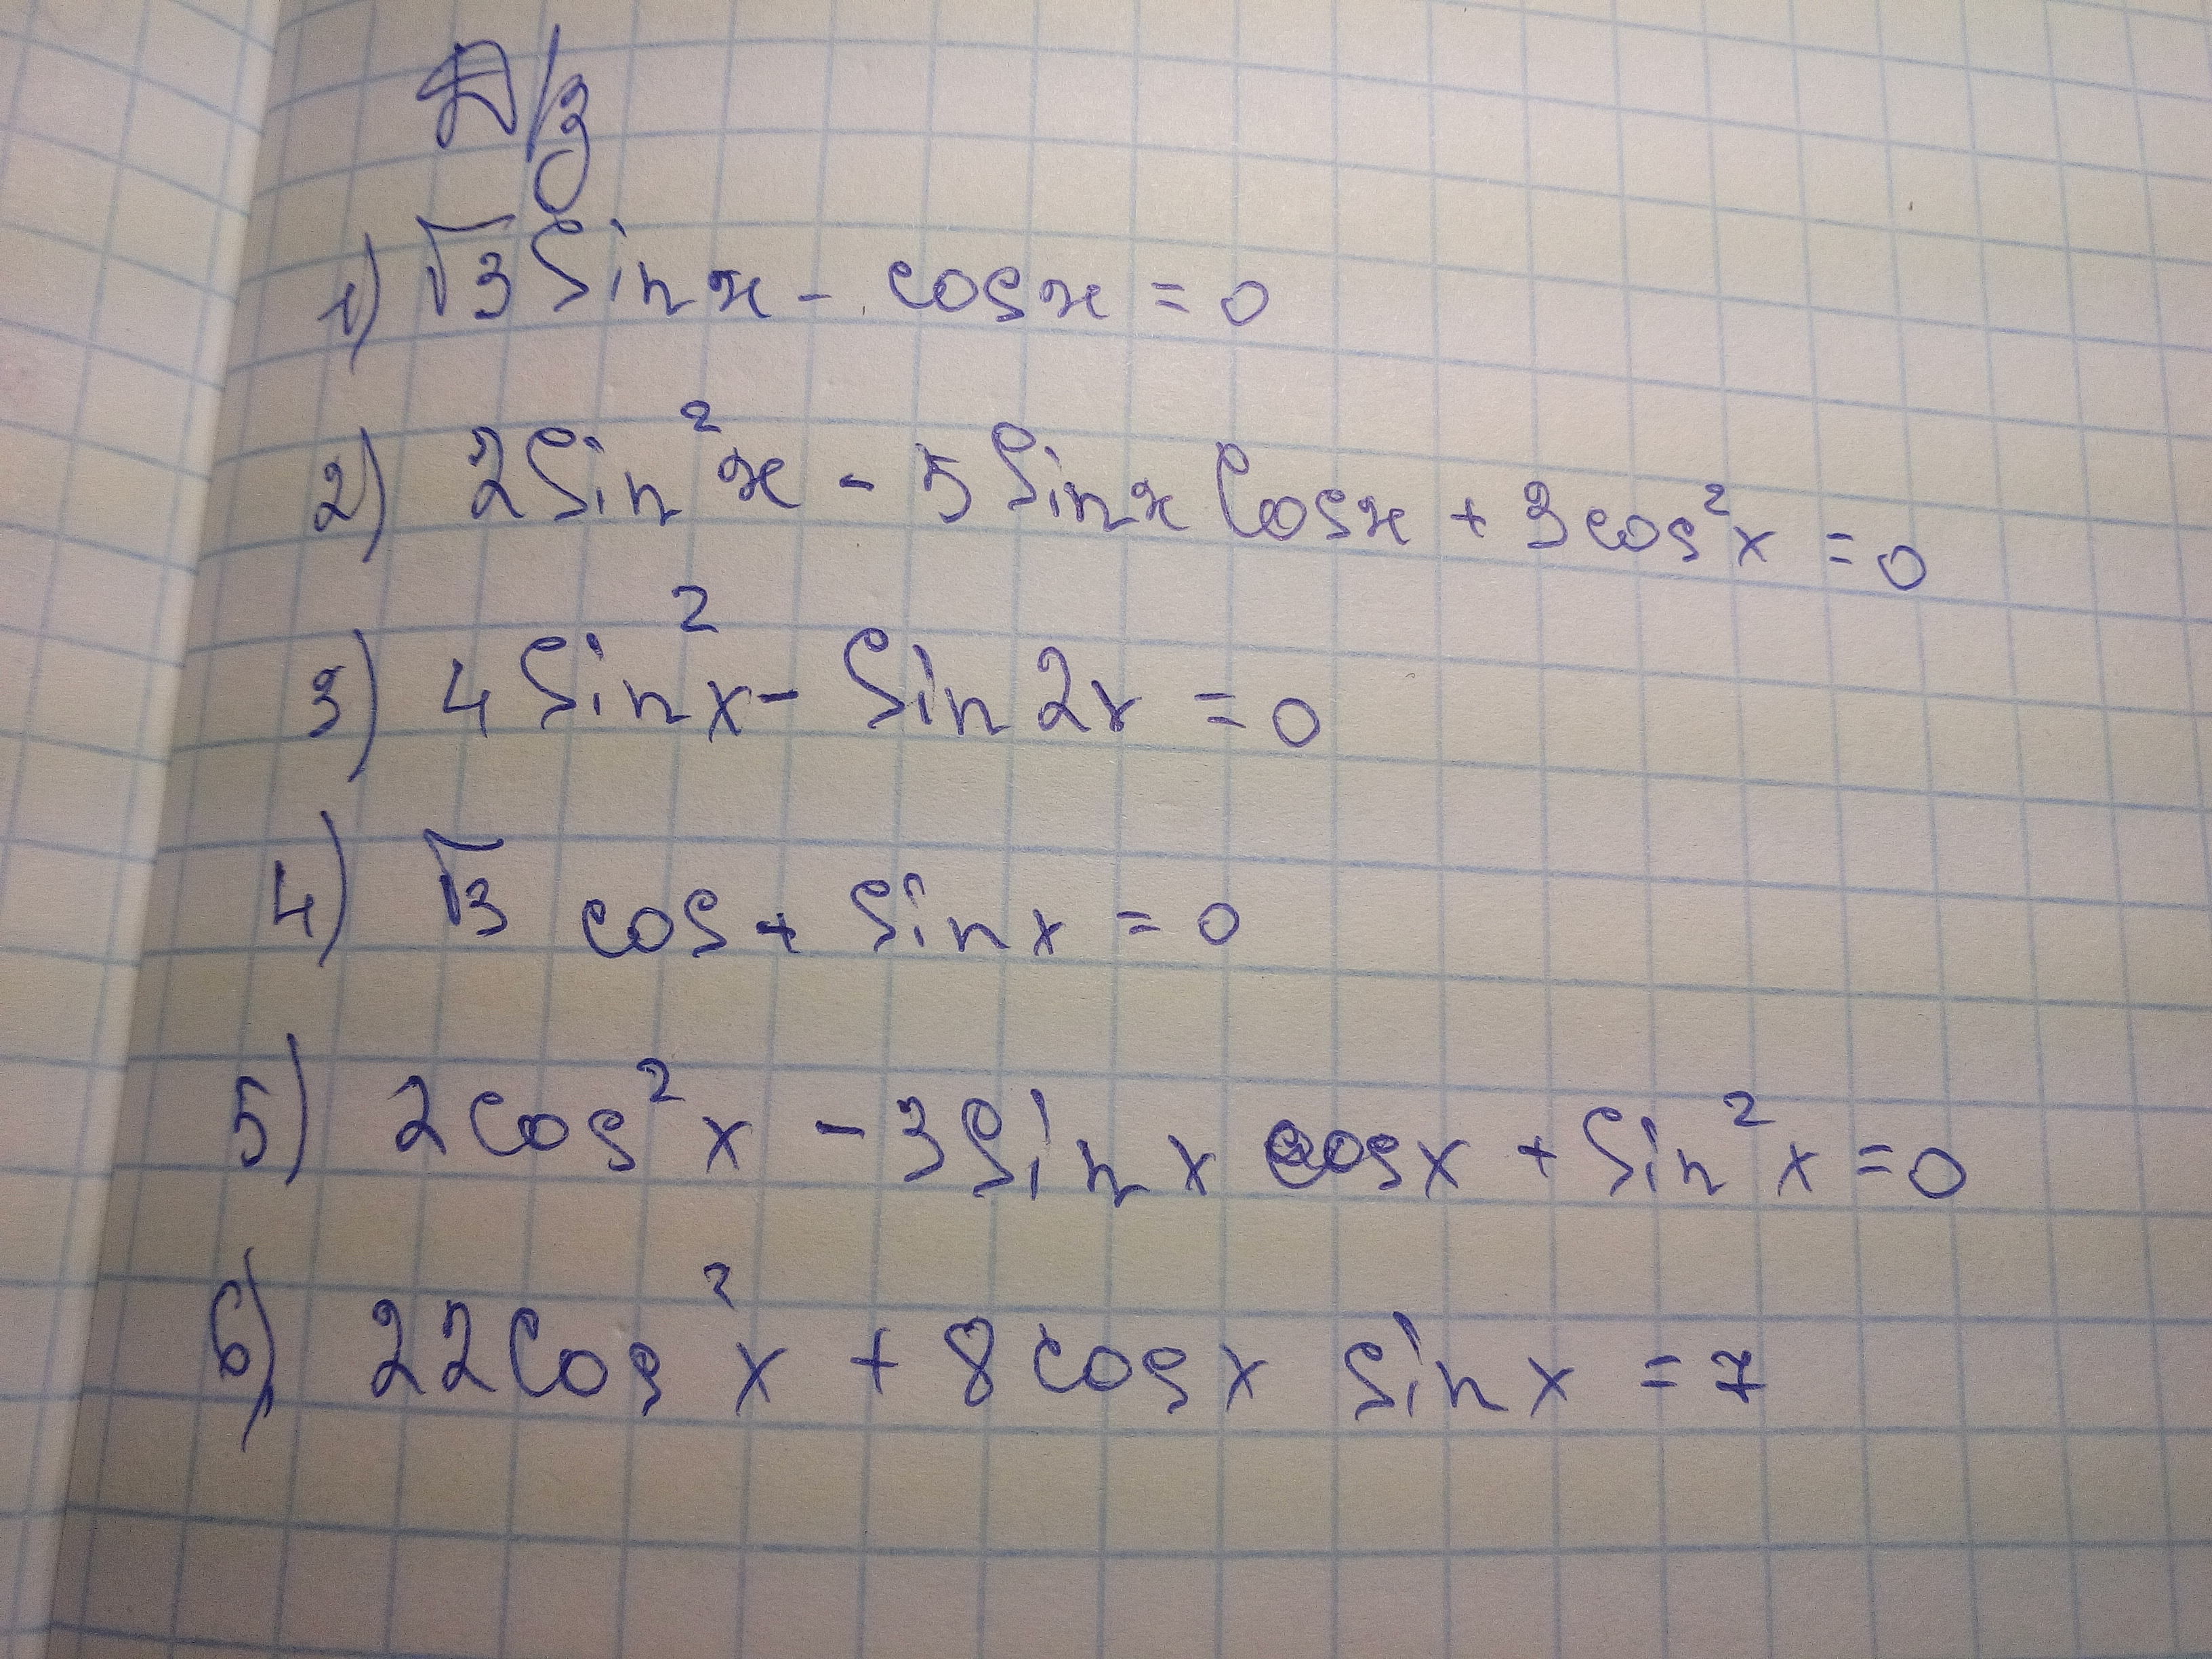 Д/з
1) √3 sin x - cos x = 0
2) 2 sin² x - 5 sin x cos x + 3 cos² x = 0
3) 4 sin² x - sin 2x = 0
4) √3 cos + sin x = 0
5) 2 cos² x - 3 sin x cos x + sin² x = 0
6) 22 cos² x + 8 cos x sin x = 7